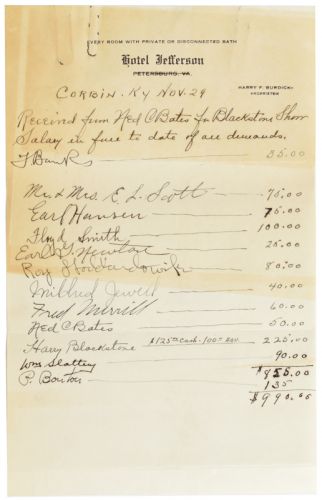 EVERY ROOM WITH PRIVATE OR DISCONNECTED BATH
Hotel Jefferson
PETERSBURG, VA.
HARRY F. BURDICK
PROPRIETOR
CORBIN. KY NOV. 29
Received from Ned C Bates for Blackstone Show
Salary in full to date of all demands.
F Banks 35.00
Mr. & Mrs. E. L. Scott 75.00
Earl Hansen 75.00
Floyd Smith 100.00
Earl Newton 25.00
Roy Stoddard & wife 80.00
Mildred Jewell 40.00
Fred Merrill 60.00
Ned C Bates 50.00
Harry Blackstone $125.00 Cash - 100.00 225.00
Wm Slattery 90.00
P. Bouton $855.00
135
$990.00